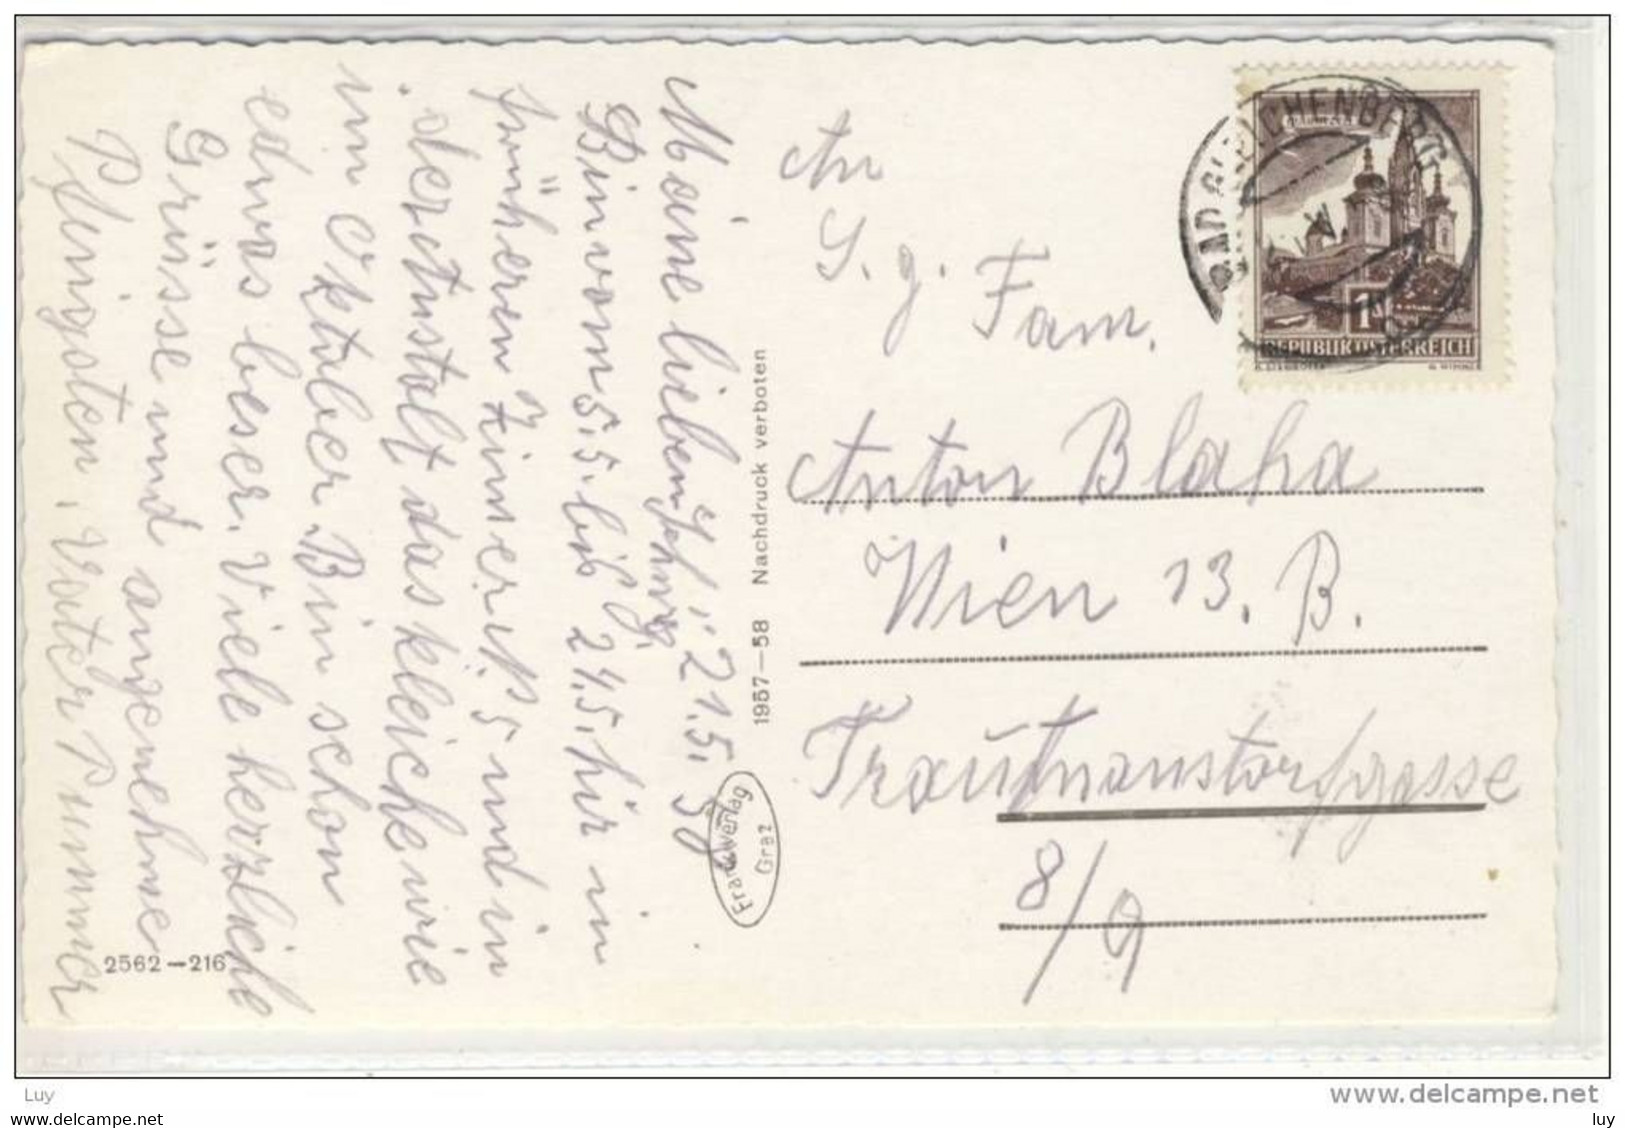 Meine lieben! 21.5.58
Bin vom 5.5. bis 24.5. hir in
früheren Zimer 5 und in
derctustalt das kleiche wie
im Oktober. Bin schon
edwas beser. Viele herzliche
Grüsse und angenehme
Pfingsten, Vater Pummer
2562-216
1957-58 Nachdruck verboten
Frank Verlag
Graz
An
S. g. Fam.
Anton Blaha
Wien 13. B.
Trautmanstorfgasse
8/9
BAD GLEICHENBERG
1S
REPUBLIK ÖSTERREICH
Luy
www.delcampe.net
luy
luy